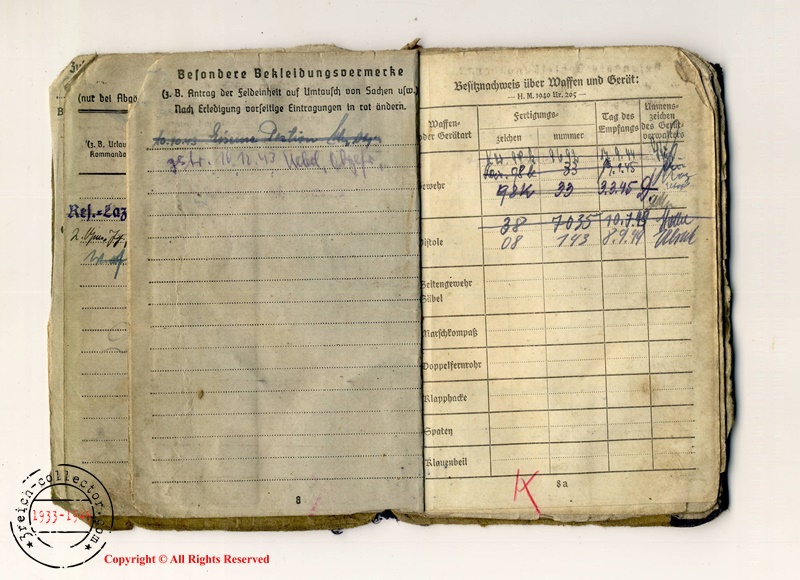 (nur bei Abgö
B
(z. B. Urlau
Kommando
Res.=Laz
Besondere Bekleidungsvermerke
(z. B. Antrag der Feldeinheit auf Umtausch von Sachen usw.)
Nach Erledigung vorseitige Eintragungen in rot ändern.
10.10.43 Eiserne Portion
gestr. 16.12.43 Uebel, Obgefr.
8
Besitznachweis über Waffen und Gerät:
— H. M. 1940 Nr. 205 —
Waffen-
oder Gerätart
Fertigungs-
zeichen
nummer
Tag des
Empfangs
Namens-
zeichen
des Gerät-
verwalters
ewehr
98k 33
98K 33 3.3.45
istole
38 7035 10.7.44
08 143 8.9.44
Seitengewehr
Säbel
Marschkompaß
Doppelfernrohr
Klapphacke
Spaten
Klauenbeil
8a
3reich-collector.com
1933-19
Copyright © All Rights Reserved